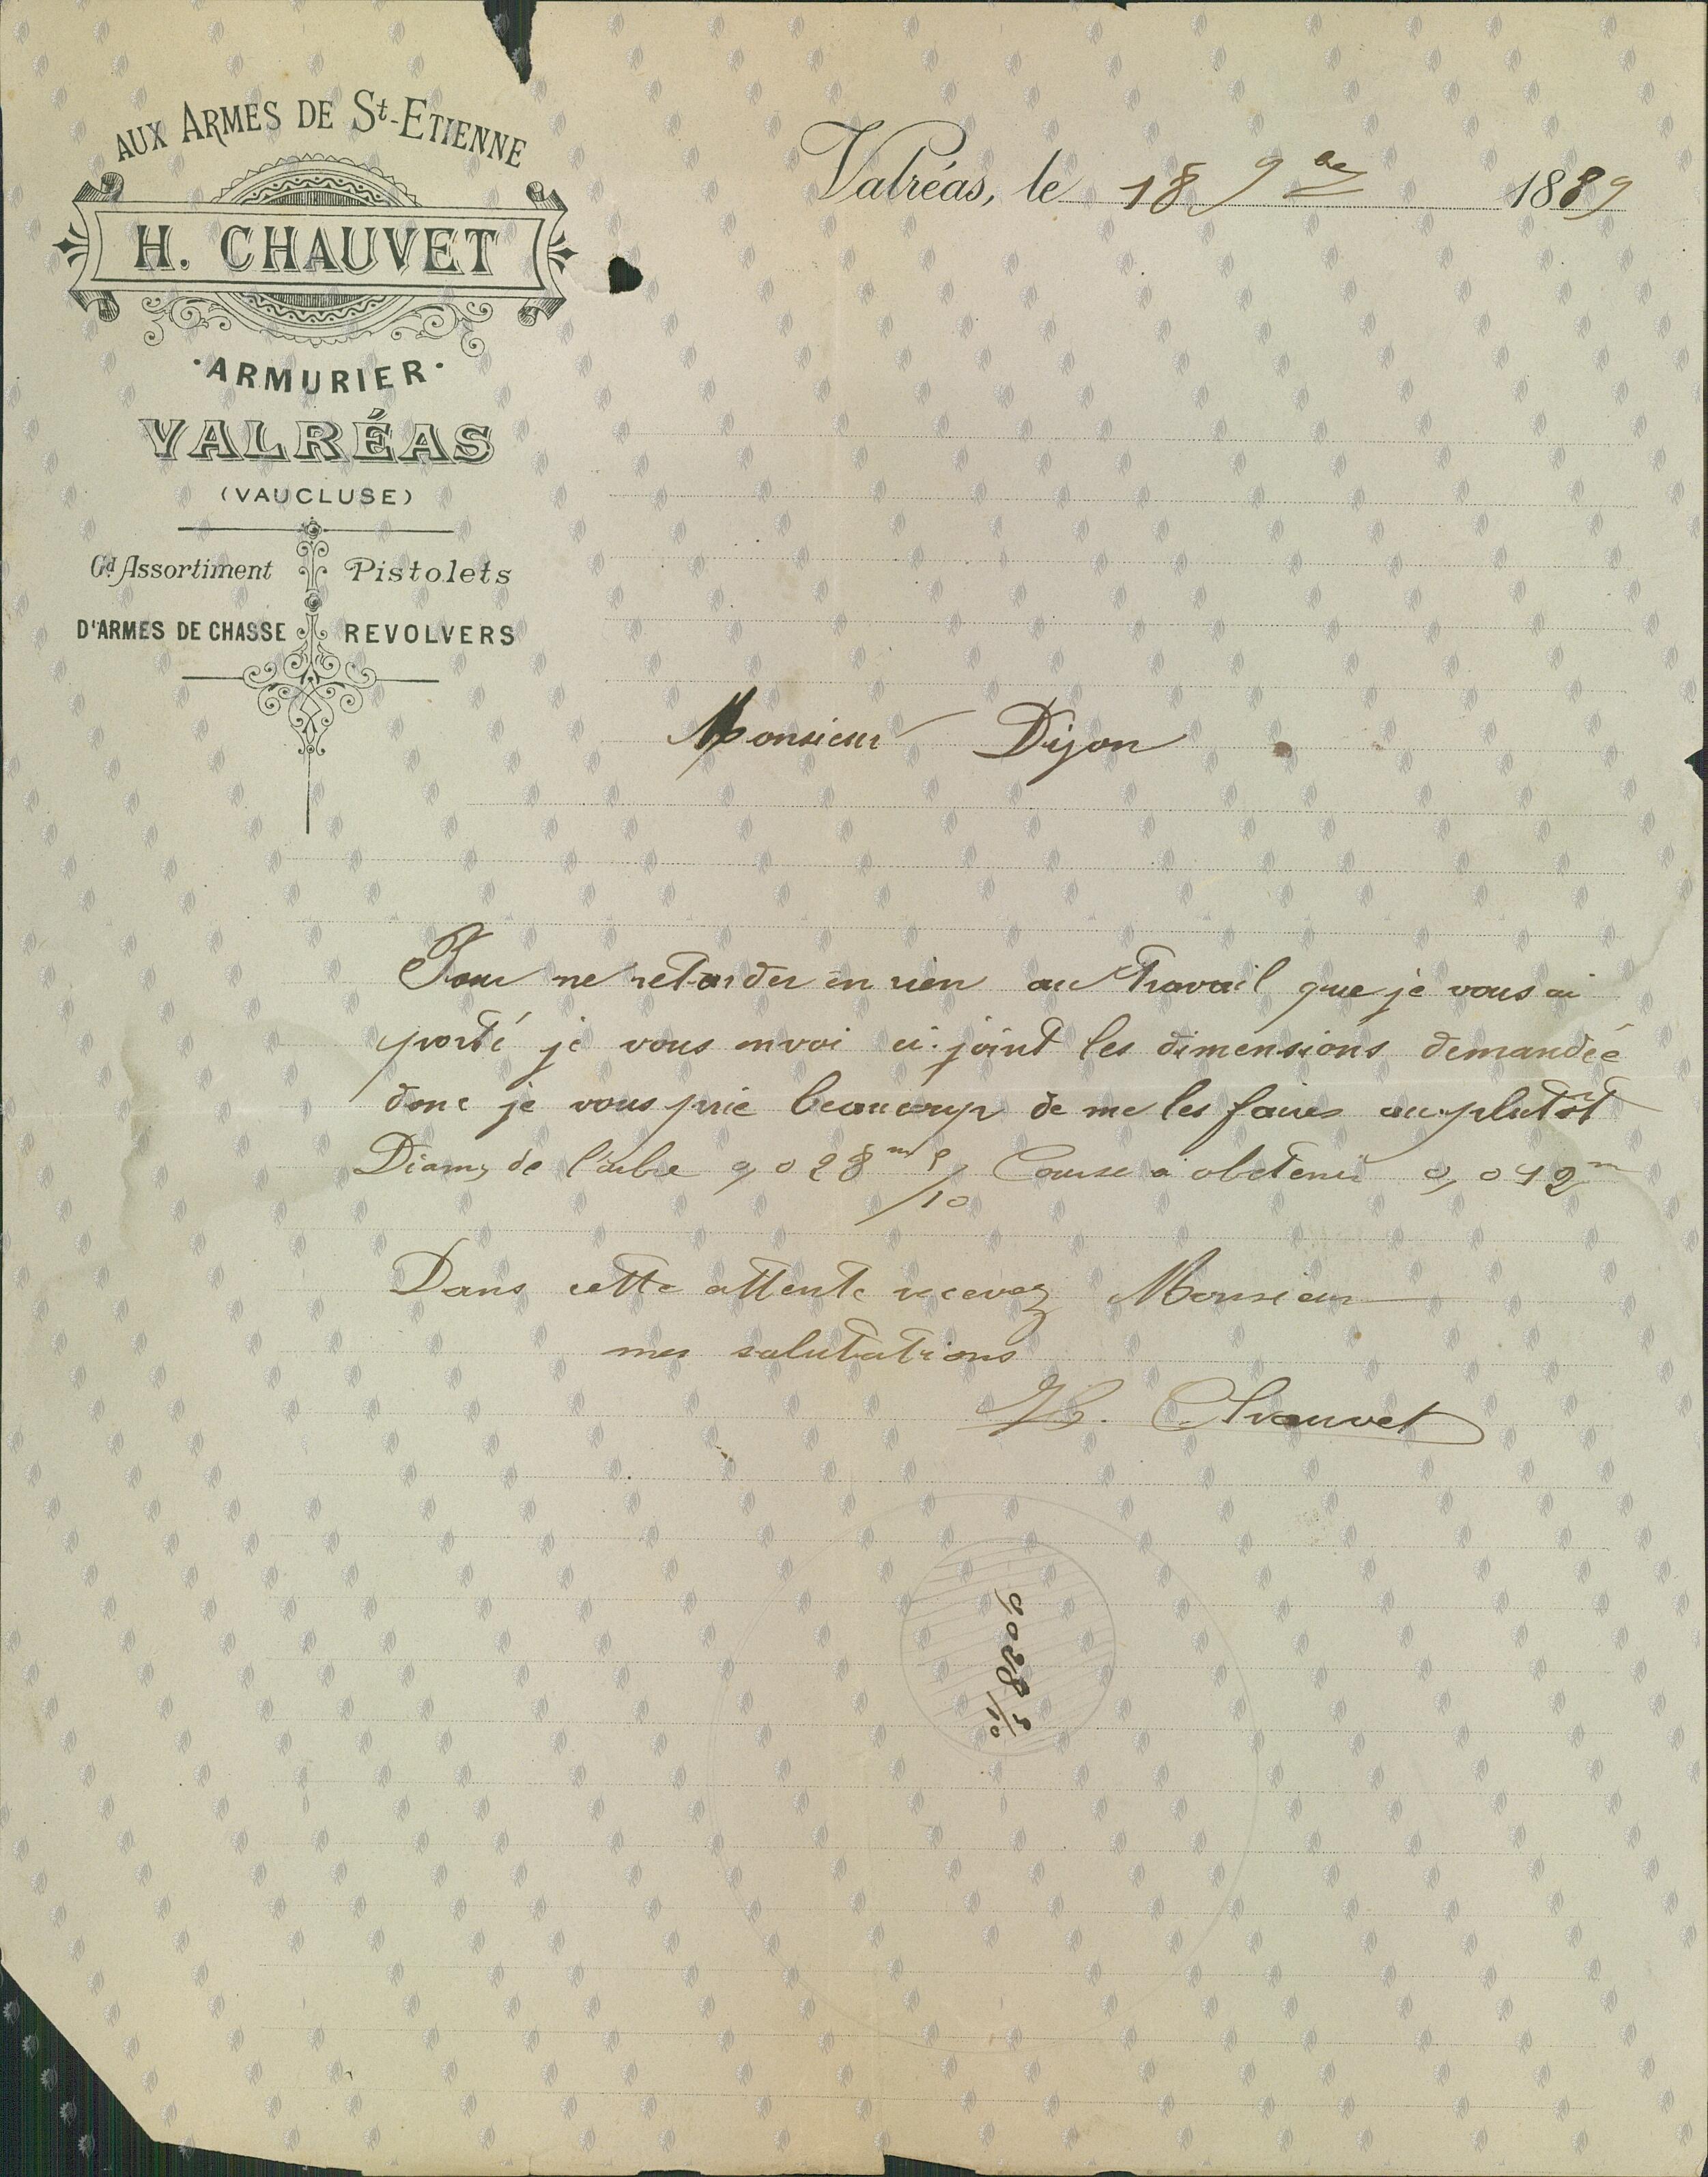 AUX ARMES DE St-ETIENNE
H. CHAUVET
ARMURIER
VALRÉAS
(VAUCLUSE)
Gd Assortiment
D'ARMES DE CHASSE
Pistolets
REVOLVERS
Valréas, le 18 9bre 1889
Monsieur Dijon
Pour ne retarder en rien au travail que je vous ai
porté je vous envoi ci-joint les dimensions demandée
donc je vous prie beaucoup de me les faires au plutôt
Diam, de l'arbre 0,028 m 5/10 Course à obtenir 0,012 m
Dans cette attente recevez Monsieur
mes salutations
H. Chauvet
0,028 5/10